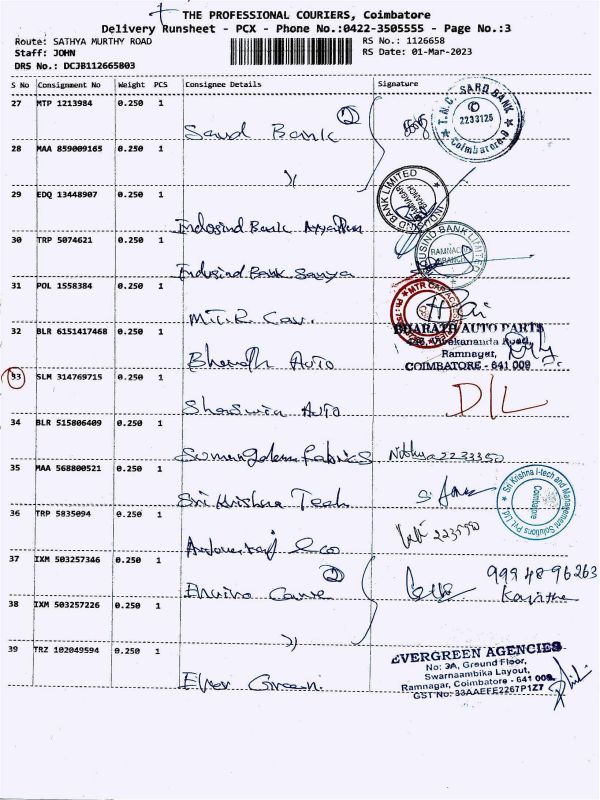 THE PROFESSIONAL COURIERS, Coimbatore
Delivery Runsheet - PCX - Phone No.:0422-3505555 - Page No.:3
Route: SATHYA MURTHY ROAD
RS No.: 1126658
Staff: JOHN
RS Date: 01-Mar-2023
DRS No.: DCJB112665803
S No Consignment No Weight PCS Consignee Details Signature
27 MTP 1213984 0.250 1
Saud Bank 2
T.N.C. SARD BANK
2233125
Coimbatore-9
28 MAA 859009165 0.250 1
"
29 EDQ 13448907 0.250 1
Indusind Bank
BANK LIMITED
BRANCH
30 TRP 5074621 0.250 1
Indusind Bank
INDUSIND BANK LIMITED
RAMNAGAR
BRANCH
31 POL 1558384 0.250 1
M.T.R Car.
MTR CAR
32 BLR 6151417468 0.250 1
Bharath Auto
BHARATH AUTO PARTS
Vivekananda Road,
Ramnagar,
COIMBATORE - 641 009
33 SLM 314769715 0.250 1
Shaswin Auto
D/L
34 BLR 515806409 0.250 1
Sumangalam Fabrics
Nithya 2233350
35 MAA 568800521 0.250 1
Sri Krishna Tech
Sri Krishna I-tech and Management Solutions Pvt. Ltd.
Coimbatore
36 TRP 5835094 0.250 1
& co
223550
37 IXM 503257346 0.250 1
Enviro Care 2
99948 96263
Kavitha
38 IXM 503257226 0.250 1
"
39 TRZ 102049594 0.250 1
Ever Green
EVERGREEN AGENCIES
No: 3A, Ground Floor,
Swarnaambika Layout,
Ramnagar, Coimbatore - 641 009.
GST No: 33AAEFE2267P1Z7